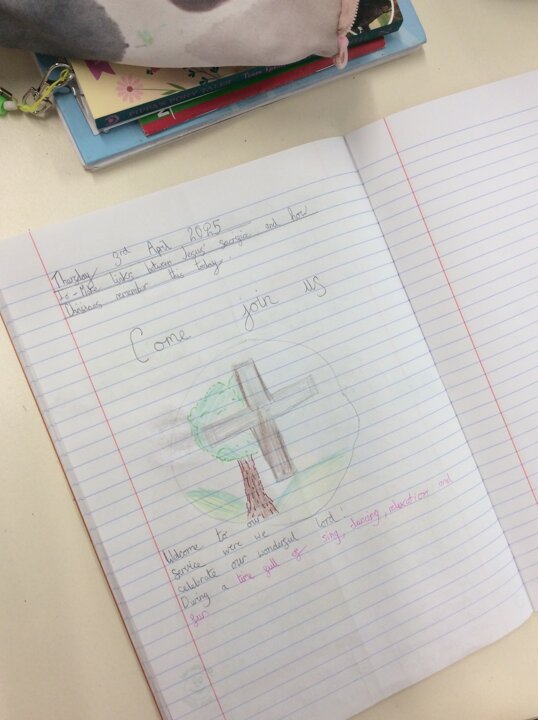 PIPPA'S PONY TALES
Thursday 3rd April 2025
to - Make links between Jesus' and how
Christians remember this today.
Come join us
Welcome to our
service were we
celebrate our wonderful lord!
During a time full of sing, dancing, relaxation and
fun